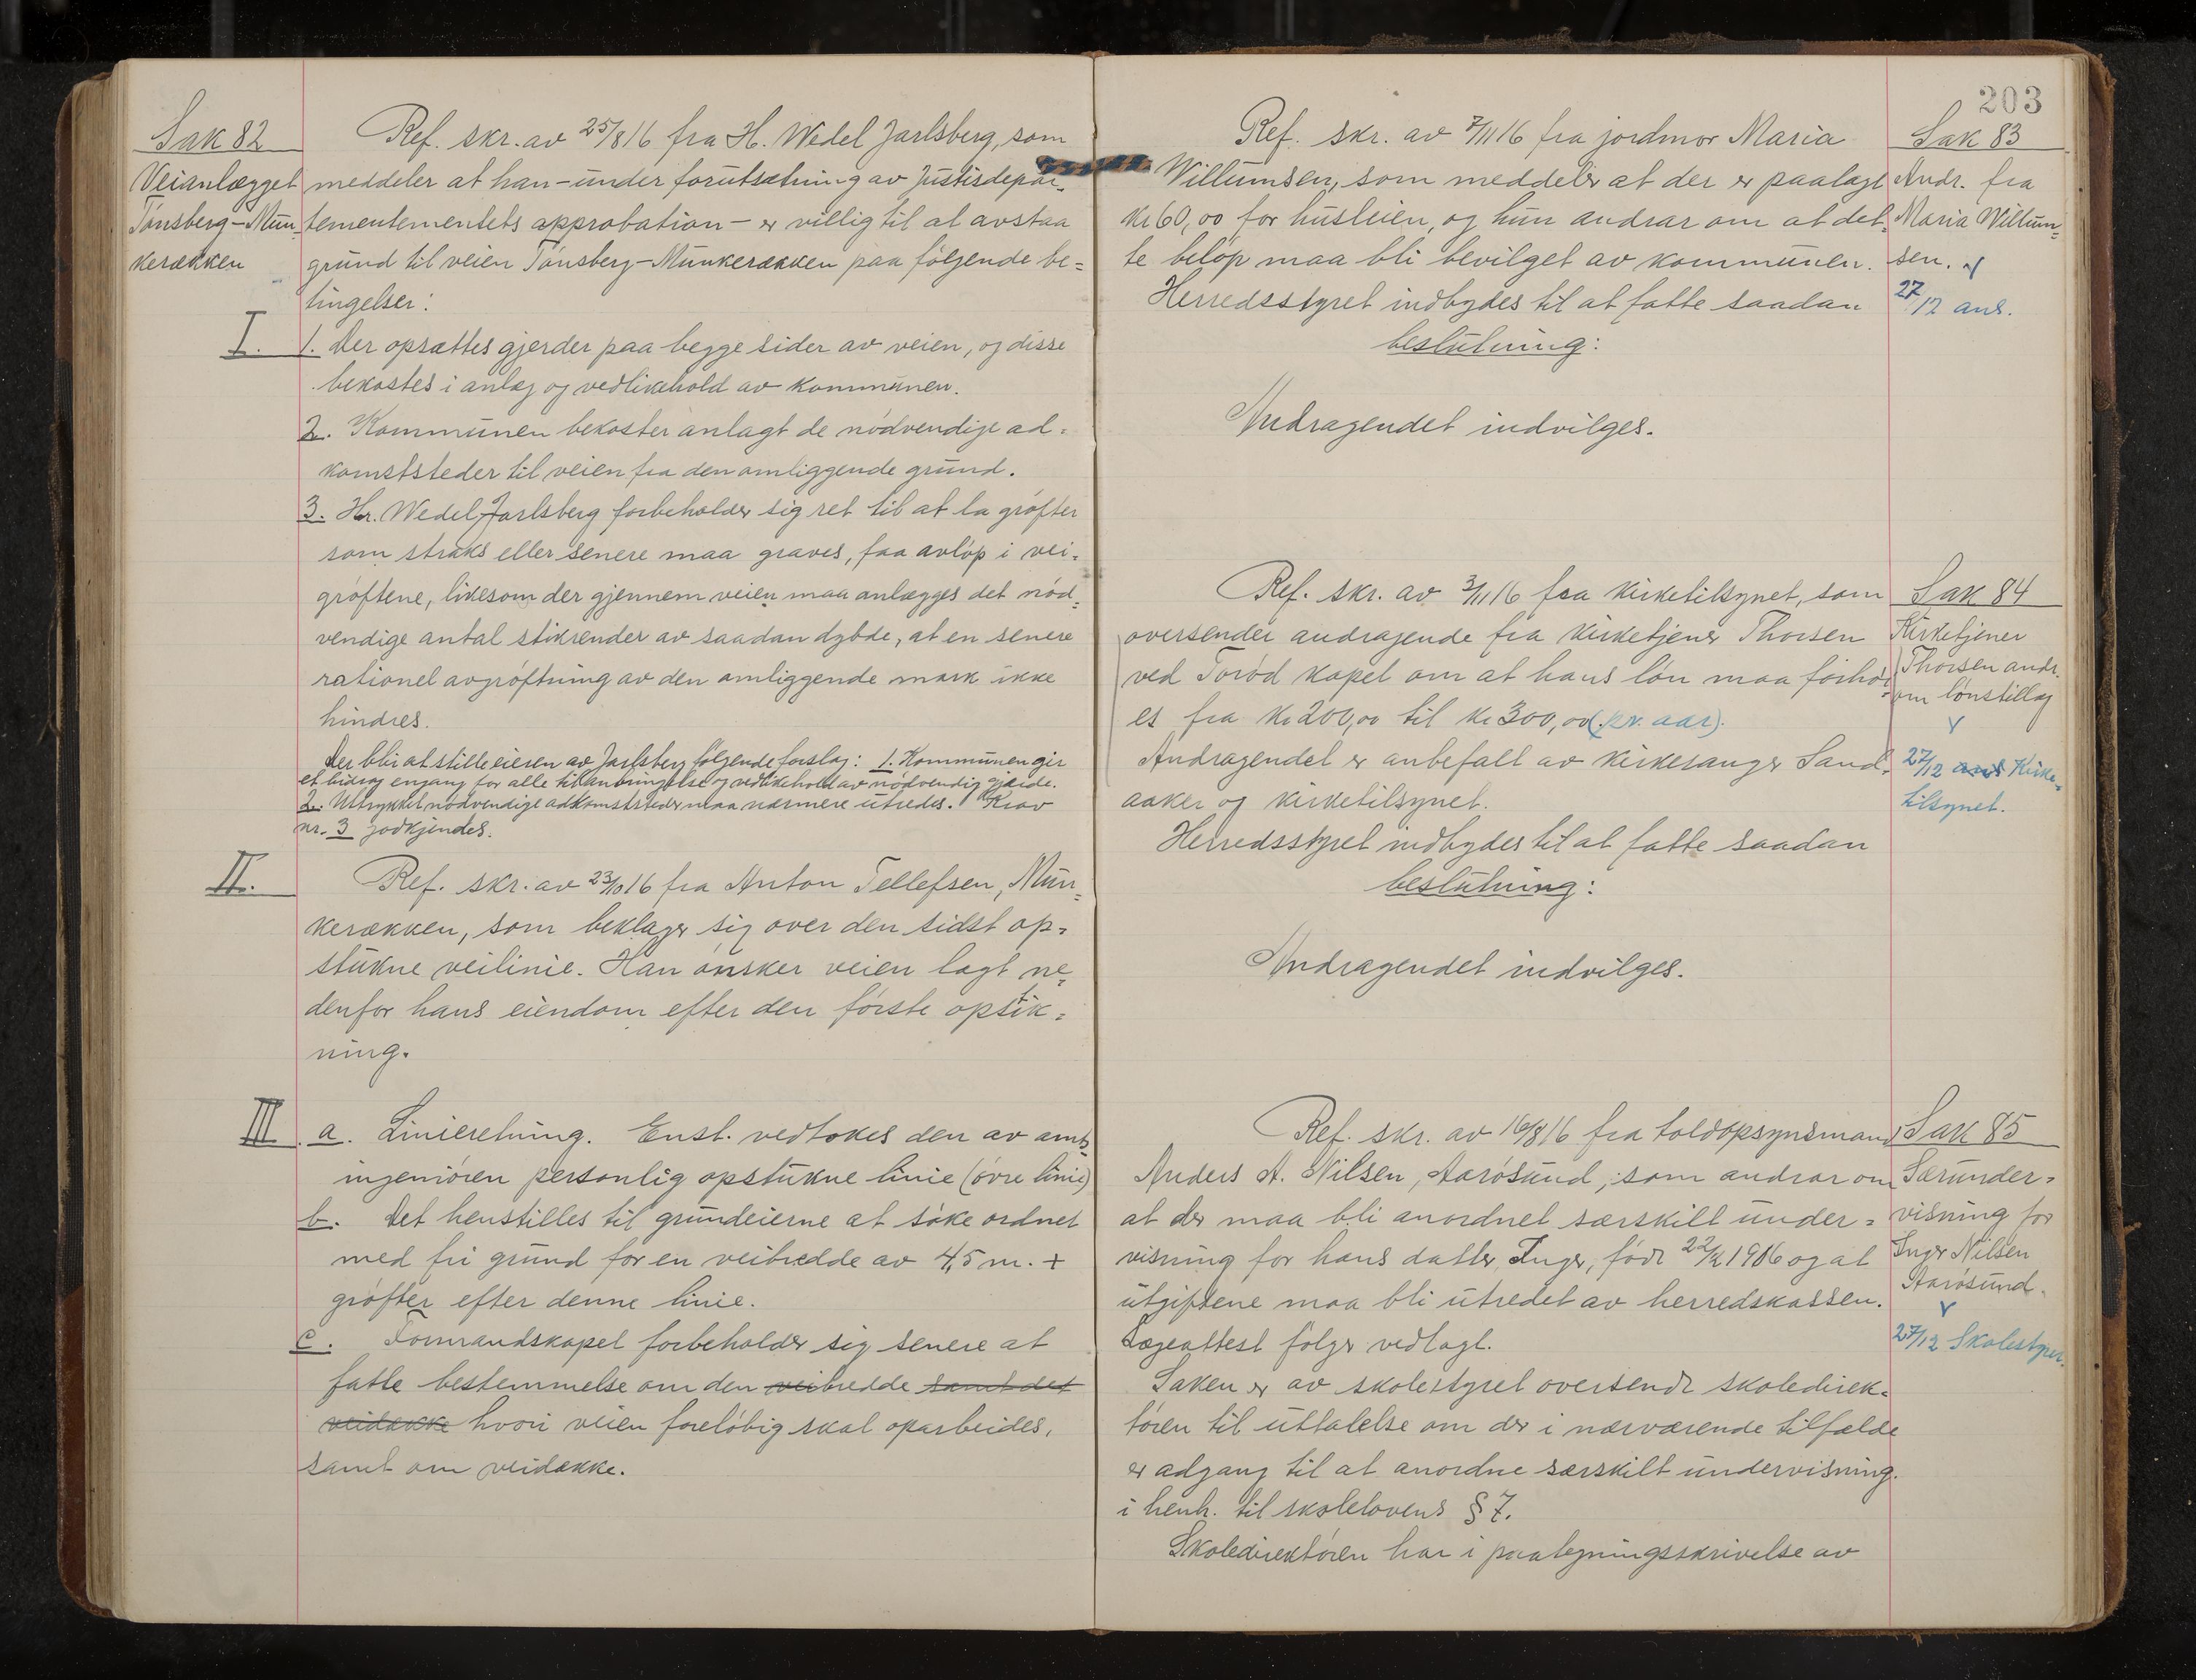 Sak 82
Veianlægget
Tønsberg-Mun-
kerækken
Ref. skr. av 25/8 16 fra H. Wedel Jarlsberg, som
meddeler at han - under forutsætning av Justisdepar-
tementementets approbation - er villig til at avstaa
grund til veien Tønsberg-Munkerækken paa følgende be-
tingelser:
I. 1. Der opsættes gjerder paa begge sider av veien, og disse
bekostes i anlæg og vedlikehold av kommunen.
2. Kommunen bekoster anlagt de nødvendige ad-
komststeder til veien fra den omliggende grund.
3. Hr. Wedel Jarlsberg forbeholder sig ret til at la grøfter
som straks eller senere maa graves, faa avløp i vei-
grøftene, likesom der gjennem veien maa anlægges det nød-
vendige antal stikrender av saadan dybde, at en senere
rationel avgrøftning av den omliggende mark ikke
hindres.
Der blir at stille eieren av Jarlsberg følgende forslag: 1. Kommunen gir
et bidrag engang for alle til anbringelse og vedlikehold av nødvendig gjærde.
2. Uttrykket nødvendige adkomststeder maa nærmere utredes. Krav
nr. 3 godkjendes.
II. Ref. skr. av 23/10 16 fra Anton Tellefsen, Mun-
kerækken, som beklager sig over den sidst op-
stukne veilinie. Han ønsker veien lagt ne-
denfor hans eiendom efter den første opstik-
ning.
III a. Linieretning. Enst. vedtokes den av amts-
ingeniøren personlig opstukne linie (øvre linie)
b. Det henstilles til grundeierne at søke ordnet
med fri grund for en veibredde av 4,5 m. +
grøfter efter denne linie.
c. Formandskapet forbeholder sig senere at
fatte bestemmelse om den veibredde samt det
veidække hvori veien foreløbig skal oparbeides,
samt om veidække.
203
Ref. skr. av 7/11 16 fra jordmor Maria
Willumsen, som meddeler at der er paalagt
kr 60,00 for husleien, og hun andrar om at det-
te beløp maa bli bevilget av kommunen.
Herredsstyret indbydes til at fatte saadan
beslutning:
Andragendet indvilges.
Sak 83
Andr. fra
Maria Willum-
sen.
27/12 ans.
Ref. skr. av 3/11 16 fra kirketilsynet, som
oversender andragende fra kirketjener Thorsen
ved Torød kapel om at hans løn maa forhøi-
es fra kr 200,00 til kr 300,00 (pr. aar).
Andragendet er anbefalt av kirkesanger Sand-
aaker og kirketilsynet.
Herredsstyret indbydes til at fatte saadan
beslutning:
Andragendet indvilges.
Sak 84
Kirketjener
Thorsen andr.
om lønstillæg
27/12 ans Kirke-
tilsynet.
Ref. skr. av 16/8 16 fra toldopsynsmand
Anders A. Nilsen, Aarøsund, som andrar om
at der maa bli anordnet særskilt under-
visning for hans datter Inger, født 22/2 1906 og at
utgiftene maa bli utredet av herredskassen.
Lægeattest følger vedlagt.
Saken er av skolestyret oversendt skoledirek-
tøren til uttalelse om der i nærværende tilfælde
er adgang til at anordne særskilt undervisning.
i henh. til skolelovens § 7.
Skoledirektøren har i paategningsskrivelse av
Sak 85
Særunder-
visning for
Inger Nilsen
Aarøsund.
27/12 Skolestyret.